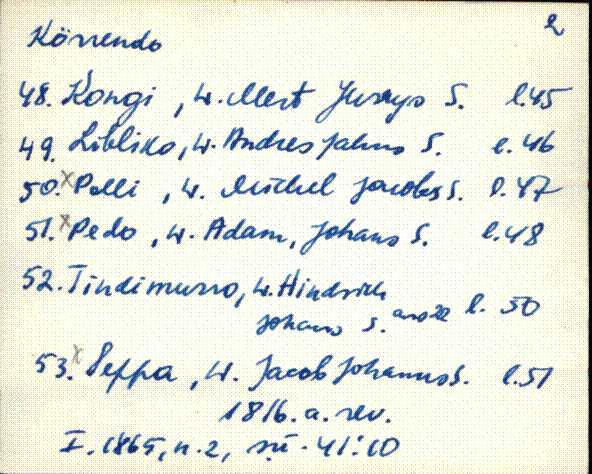 2
Körrendo
48. Kongi, w. Mert Jurrys S. l.45
49. Libliko, w. Andres Jahns S. l.46
50. x Polli, w. Michel Jacobs S. l.47
51. x Pedo, w. Adam, Johans S. l.48
52. Tindimurro, w. Hindrich
Johans S. l. 50
53. x Seppa, w. Jacob Johanns S. l.51
1816. a. rev.
I. 1865, n. 2, sü. 41:10